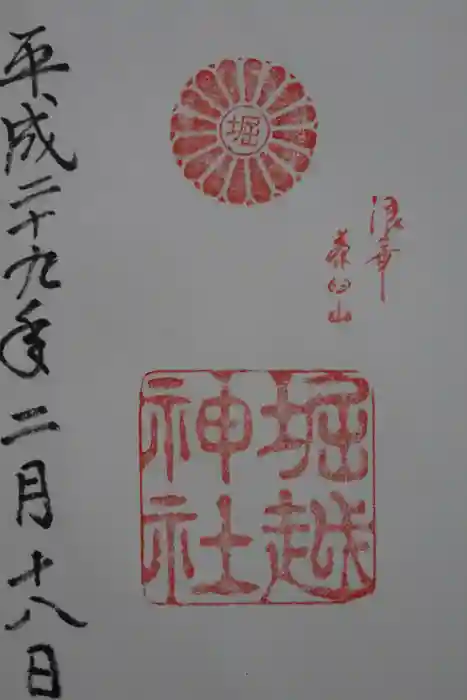 浪華
茶臼山
堀
堀越
神社
平成二十九年二月十八日